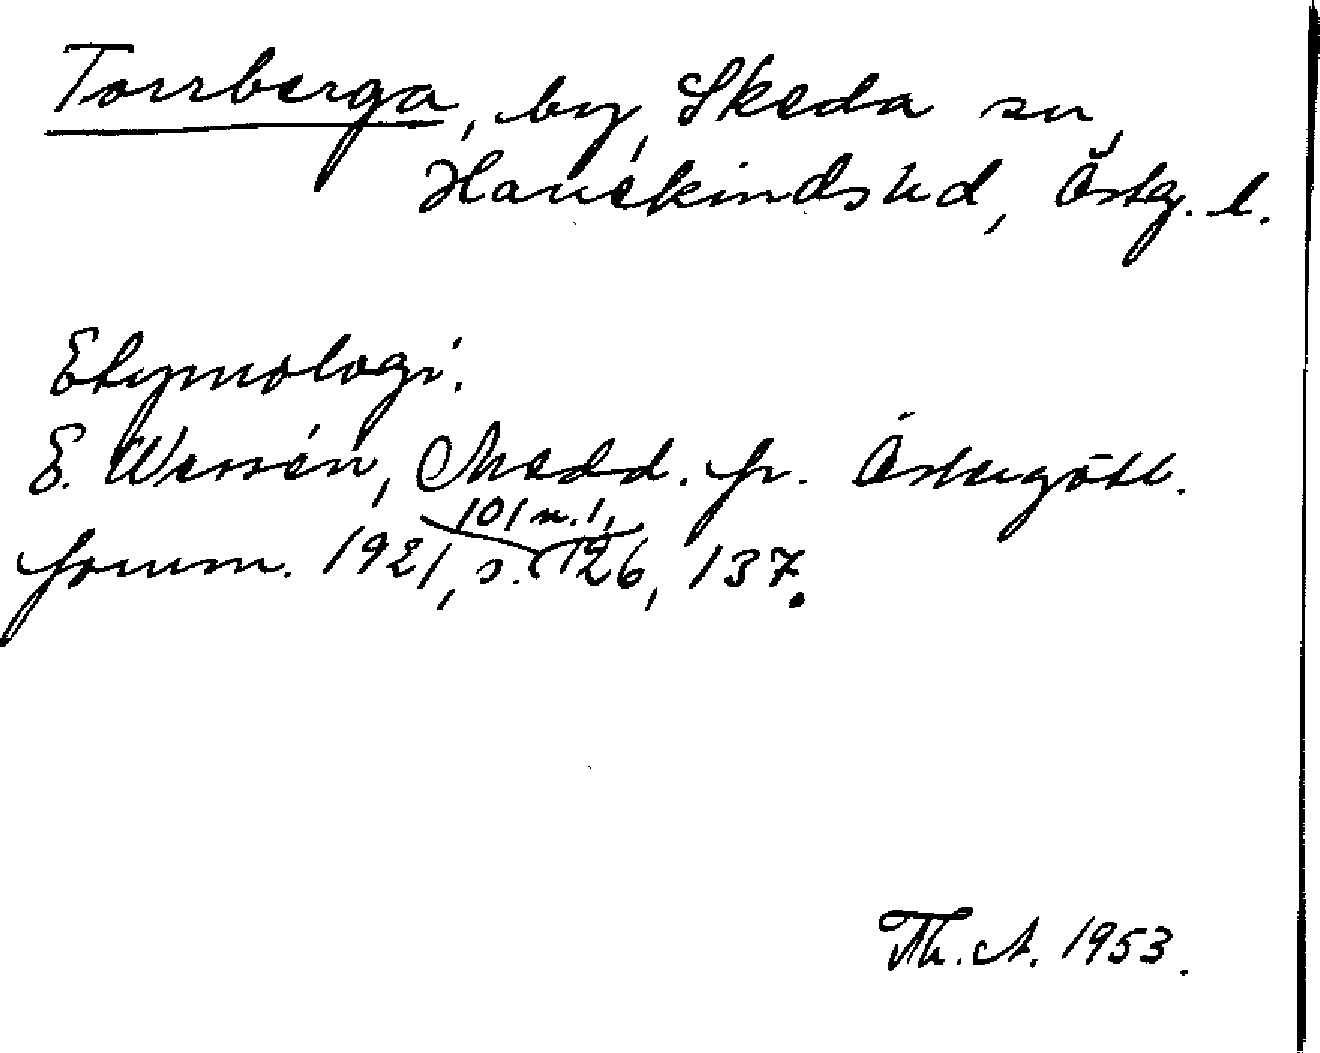 Torrberga, by, Skeda sn,
Hanekinds hd, Östg. l.
Etymologi.
E. Wessén, Medd. fr. Östergötl.
fornm. 1921, s. 101 n. 1, 126, 137.
Th. A. 1953.